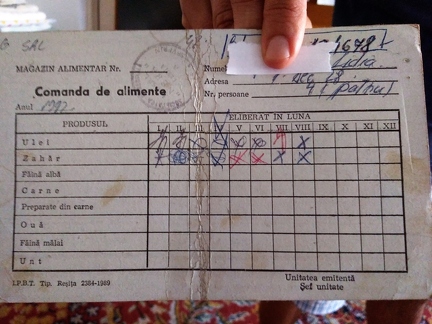 SRL
1678
MAGAZIN ALIMENTAR Nr.
Numel
Comanda de alimente
Adresa
Nr. persoane 4 (patru)
Anul 1992
PRODUSUL
ELIBERAT ÎN LUNA
I II III IV V VI VII VIII IX X XI XII
Ulei
Zahăr
Făină albă
Carne
Preparate din carne
Ouă
Făină mălai
Unt
I.P.B.T. Tip. Reșița 2384-1989
Unitatea emitentă
Șef unitate